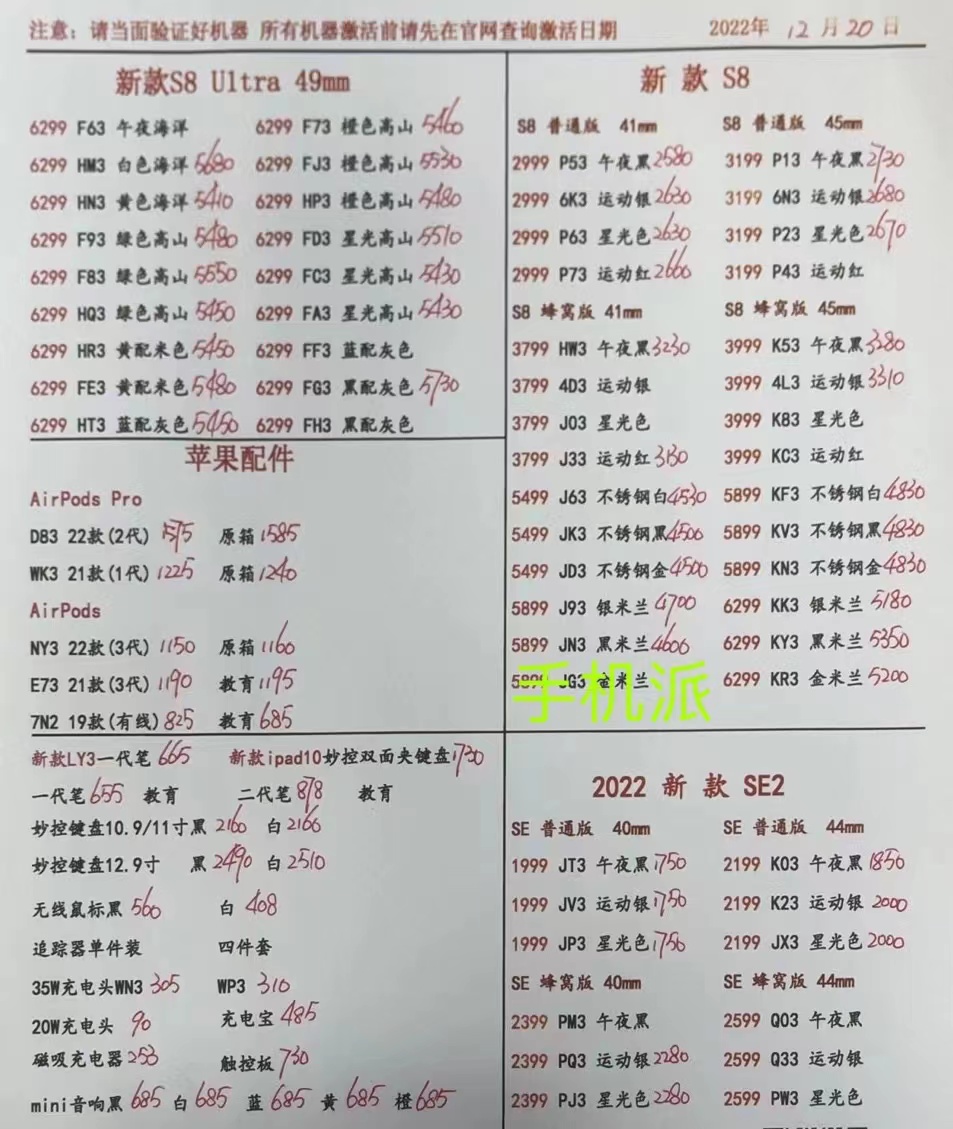 注意：请当面验证好机器 所有机器激活前请先在官网查询激活日期 2022年 12月20日
新款S8 Ultra 49mm
6299 F63 午夜海洋 6299 F73 橙色高山 5460
6299 HM3 白色海洋 5680 6299 FJ3 橙色高山 5530
6299 HN3 黄色海洋 5410 6299 HP3 橙色高山 5480
6299 F93 绿色高山 5480 6299 FD3 星光高山 5510
6299 F83 绿色高山 5550 6299 FC3 星光高山 5430
6299 HQ3 绿色高山 5450 6299 FA3 星光高山 5430
6299 HR3 黄配米色 5450 6299 FF3 蓝配灰色
6299 FE3 黄配米色 5480 6299 FG3 黑配灰色 5730
6299 HT3 蓝配灰色 5450 6299 FH3 黑配灰色
苹果配件
AirPods Pro
D83 22款(2代) 1575 原箱 1585
WK3 21款(1代) 1225 原箱 1240
AirPods
NY3 22款(3代) 1150 原箱 1160
E73 21款(3代) 1190 教育 1195
7N2 19款(有线) 825 教育 685
新款LY3一代笔 665 新款ipad10妙控双面夹键盘 1730
一代笔 655 教育 二代笔 878 教育
妙控键盘10.9/11寸黑 2160 白 2160
妙控键盘12.9寸 黑 2490 白 2510
无线鼠标黑 560 白 408
追踪器单件装 四件套
35W充电头WN3 305 WP3 310
20W充电头 90 充电宝 485
磁吸充电器 253 触控板 730
mini音响黑 685 白 685 蓝 685 黄 685 橙 685
新 款 S8
S8 普通版 41mm S8 普通版 45mm
2999 P53 午夜黑 2580 3199 P13 午夜黑 2730
2999 6K3 运动银 2630 3199 6N3 运动银 2680
2999 P63 星光色 2630 3199 P23 星光色 2670
2999 P73 运动红 2660 3199 P43 运动红
S8 蜂窝版 41mm S8 蜂窝版 45mm
3799 HW3 午夜黑 3230 3999 K53 午夜黑 3280
3799 4D3 运动银 3999 4L3 运动银 3310
3799 J03 星光色 3999 K83 星光色
3799 J33 运动红 3130 3999 KC3 运动红
5499 J63 不锈钢白 4530 5899 KF3 不锈钢白 4830
5499 JK3 不锈钢黑 4500 5899 KV3 不锈钢黑 4830
5499 JD3 不锈钢金 4500 5899 KN3 不锈钢金 4830
5899 J93 银米兰 4700 6299 KK3 银米兰 5180
5899 JN3 黑米兰 4600 6299 KY3 黑米兰 5350
5899 JG3 金米兰 6299 KR3 金米兰 5200
手机派
2022 新 款 SE2
SE 普通版 40mm SE 普通版 44mm
1999 JT3 午夜黑 1750 2199 K03 午夜黑 1850
1999 JV3 运动银 1750 2199 K23 运动银 2000
1999 JP3 星光色 1750 2199 JX3 星光色 2000
SE 蜂窝版 40mm SE 蜂窝版 44mm
2399 PM3 午夜黑 2599 Q03 午夜黑
2399 PQ3 运动银 2280 2599 Q33 运动银
2399 PJ3 星光色 2280 2599 PW3 星光色